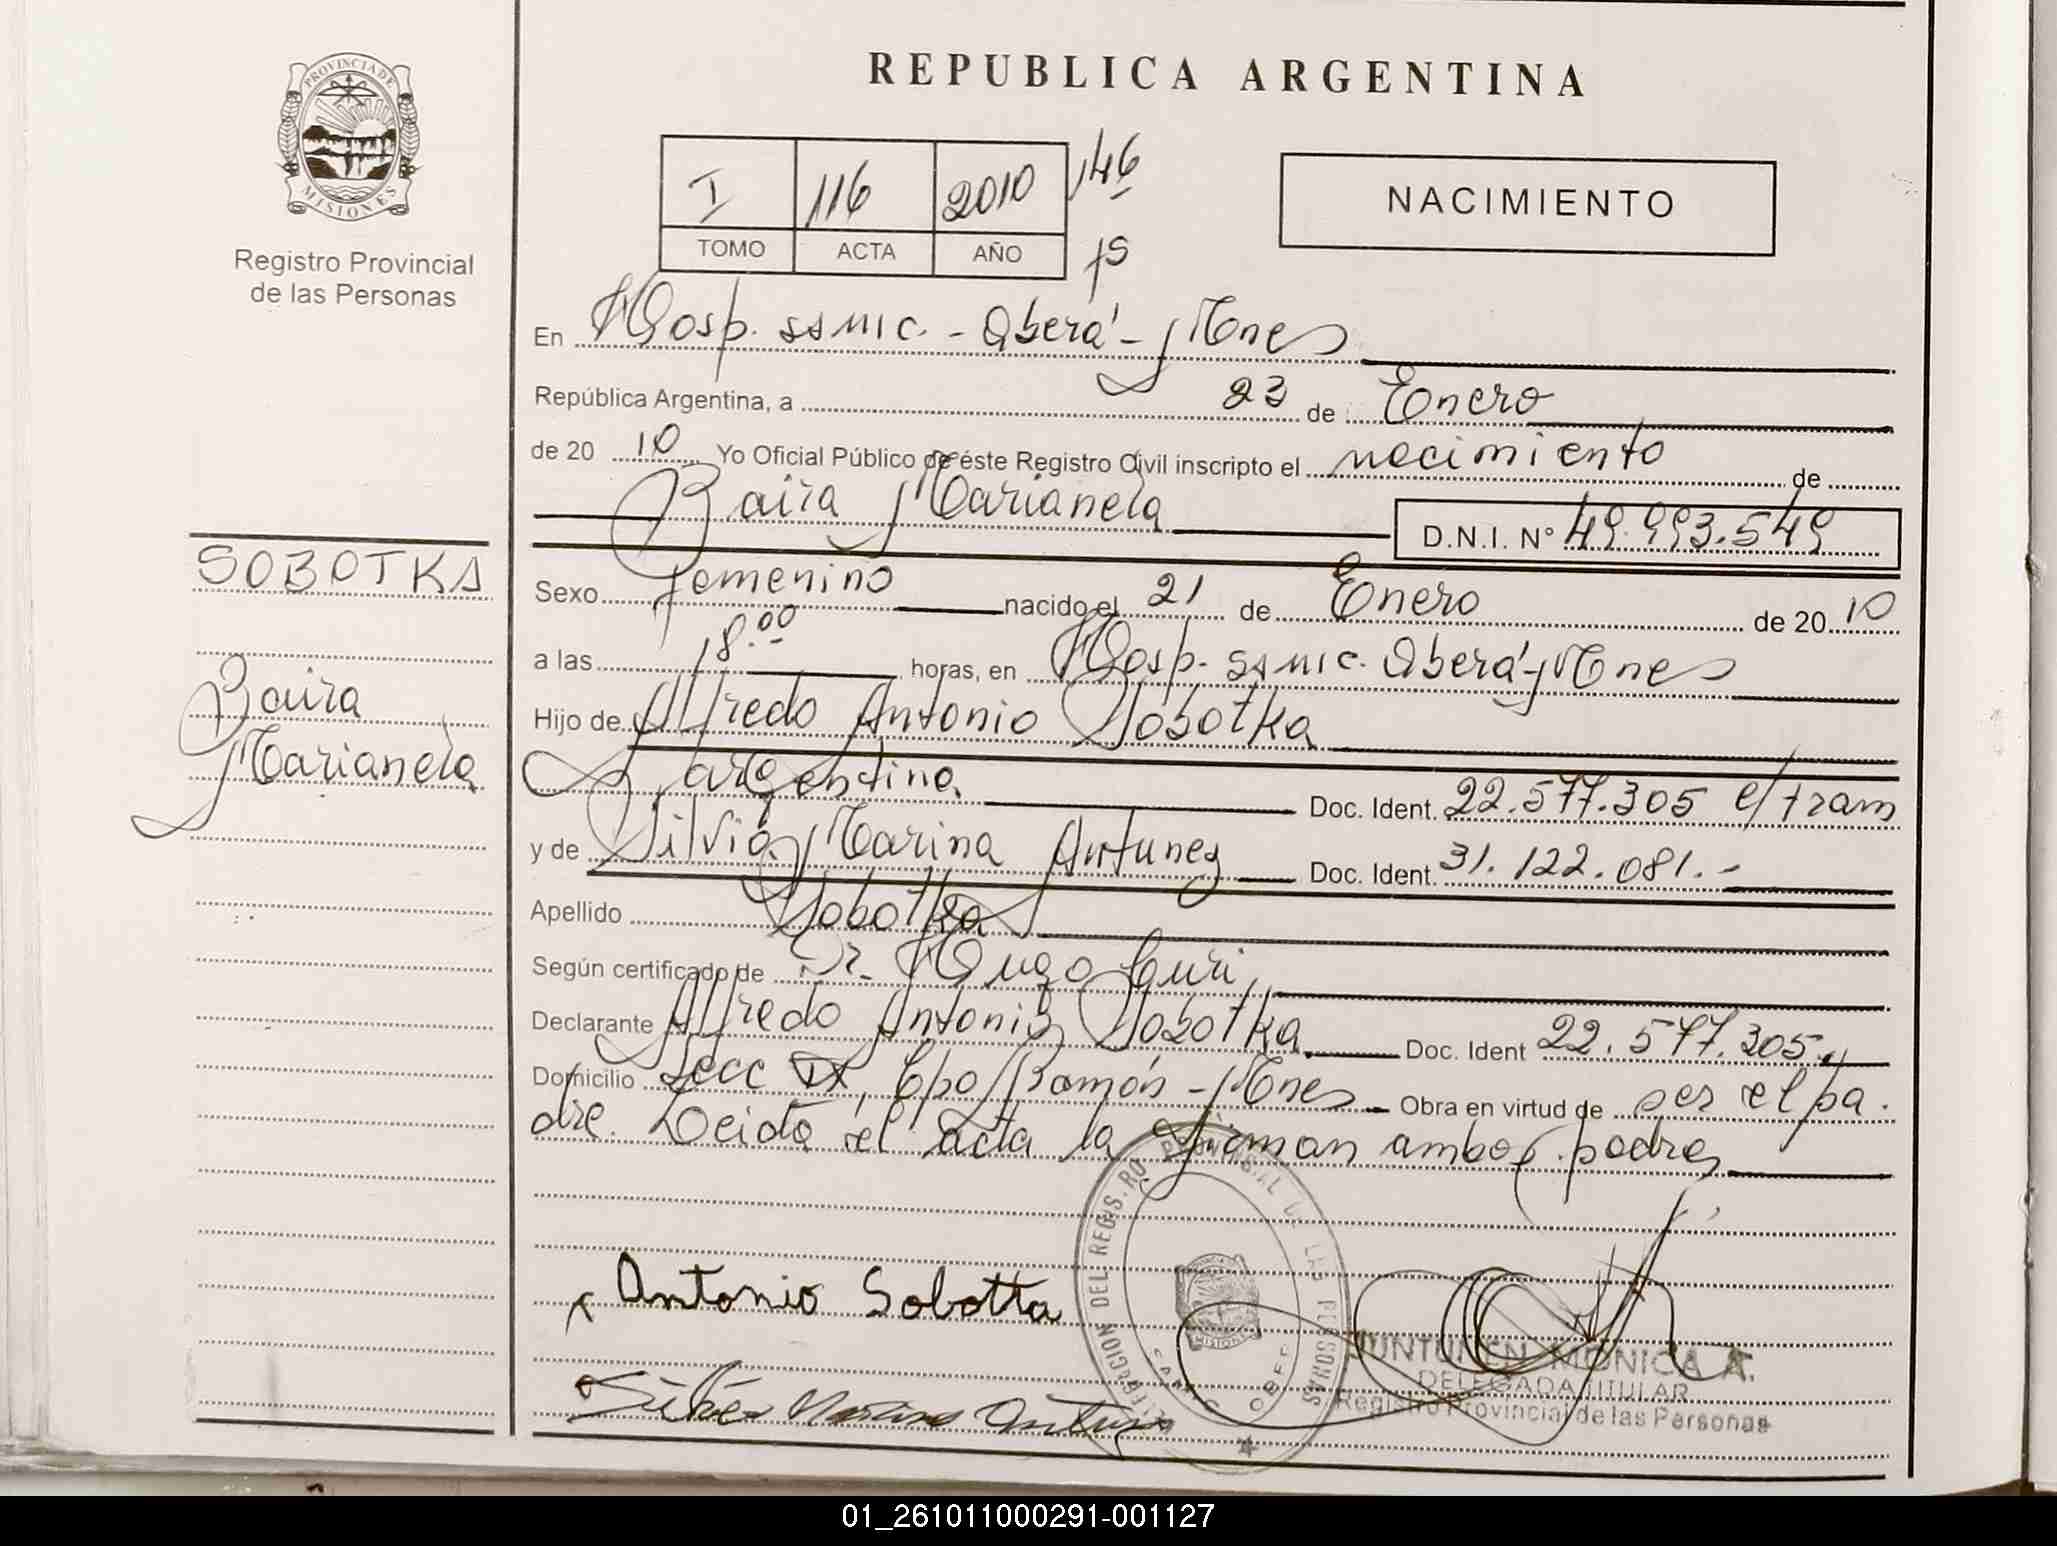 PROVINCIA DE
MISIONES
Registro Provincial
de las Personas
SOBOTKA
Baira
Marianela
REPUBLICA ARGENTINA
I 116 2010 146
TOMO ACTA AÑO 15
NACIMIENTO
En Hosp. ssmic. - Oberá - Mnes
República Argentina, a 23 de Enero
de 20 10 Yo Oficial Público de éste Registro Civil inscripto el nacimiento de
Baira Marianela D.N.I. Nº 49.993.549
Sexo femenino nacido el 21 de Enero de 20 10
a las 18.00 horas, en Hosp. ssmic. Oberá - Mnes
Hijo de Alfredo Antonio Sobotka
argentina. Doc. Ident. 22.577.305 e/tram
y de Silvia Marina Antunez Doc. Ident. 31.122.081.-
Apellido Sobotka
Según certificado de Dr. Hugo Curi
Declarante Alfredo Antonio Sobotka. Doc. Ident 22.577.305.
Domicilio Secc IX, Cpo Ramón - Mnes Obra en virtud de ser el pa.
dre. Leida el acta la firman ambos padres
DELEGACION DEL REGISTRO PROVINCIAL DE LAS PERSONAS
MISIONES
Antonio Sobotta
JUNTUNEN MONICA A.
DELEGADA TITULAR
Registro Provincial de las Personas
Silvia Marina Antunez
01_261011000291-001127